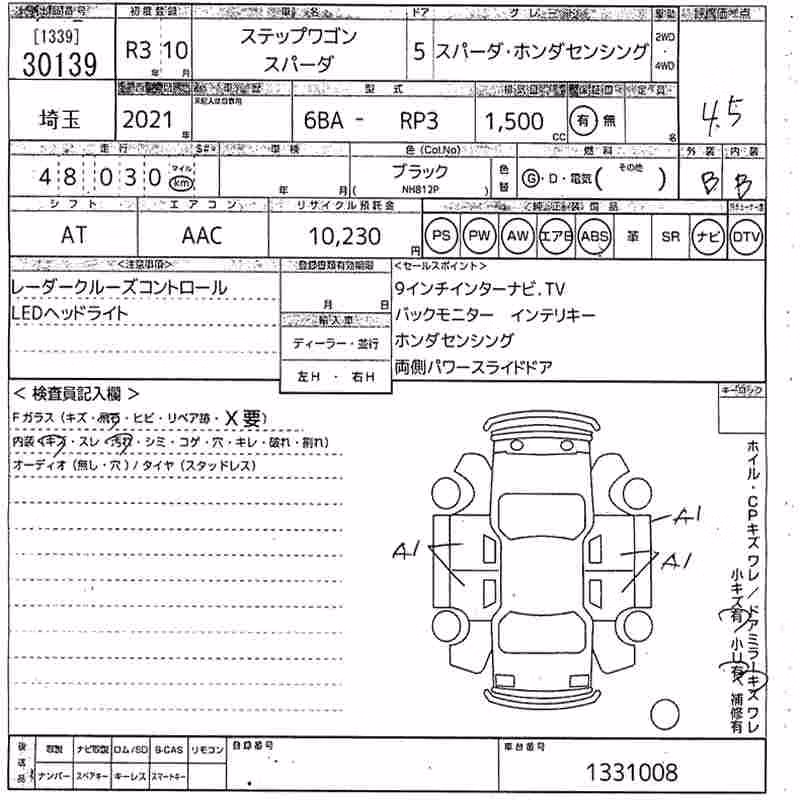 初度登録 車名 ドア グレード 駆動 評価点
[1339]
30139
R3 10
年 月
ステップワゴン
スパーダ
5
スパーダ・ホンダセンシング
2WD
・
4WD
4.5
埼玉
2021
年
型式
6BA - RP3
1,500
CC
有 無
名
走行 車検 色(Col.No) 燃料 外装 内装
48030
マイル
km
年 月
ブラック
( NH812P )
色替
G・D・電気( その他 )
B B
シフト エアコン リサイクル預託金
AT AAC 10,230 円
PS PW AW エアB ABS 革 SR ナビ DTV
<注意事項>
レーダークルーズコントロール
LEDヘッドライト
登録書類有効期限
月 日
輸入車
ディーラー・並行
左H ・ 右H
<セールスポイント>
9インチインターナビ.TV
バックモニター インテリキー
ホンダセンシング
両側パワースライドドア
キーロック
< 検査員記入欄 >
Fガラス(キズ・飛石・ヒビ・リペア跡・X要)
内装(キズ・スレ・汚れ・シミ・コゲ・穴・キレ・破れ・割れ)
オーディオ(無し・穴)/タイヤ(スタッドレス)
A1
A1
A1
ホイル・CPキズワレ/ドアミラーキズワレ
小キズ有/小U有 補修有
後送品
取説 ナビ取説 ロム/SD B-CAS リモコン
ナンバー スペアキー キーレス スマートキー
登録番号
車台番号
1331008